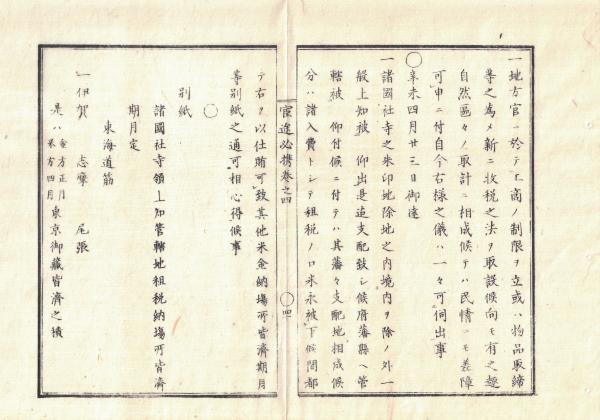 一地方官ニ於テ工商ノ制限ヲ立或ハ物品取締
等之為メ新ニ收税之法ヲ取設候向モ有之趣
自然區々ノ取計ニ相成候テハ民情ニモ差障
可申ニ付自今右様之儀ハ一々可伺出事
○辛未四月廿三日御達
一諸國社寺之朱印地除地之内境内ヲ除ノ外一
般上知被 仰出是迄支配致シ候府藩縣ヘ管
轄被 仰付候ニ付テハ其藩々支配地相成候
分ハ諸入費トシテ租税ノ口米永被下候間都
宦途必携巻之四
○四
テ右ヲ以仕賄可致其他米金納塲所皆濟期月
等別紙之通可相心得候事
○
別紙
諸國社寺領上知管轄地租税納塲所皆濟
期月定
東海道筋
一伊賀 志摩 尾張
是ハ金方正月米方四月東京御藏皆濟之積